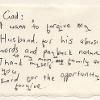 God:
I want to forgive my
Husband, for his abusive
words and payback nature.
Thank myself family and
You
Lord for the opportunity
forgive